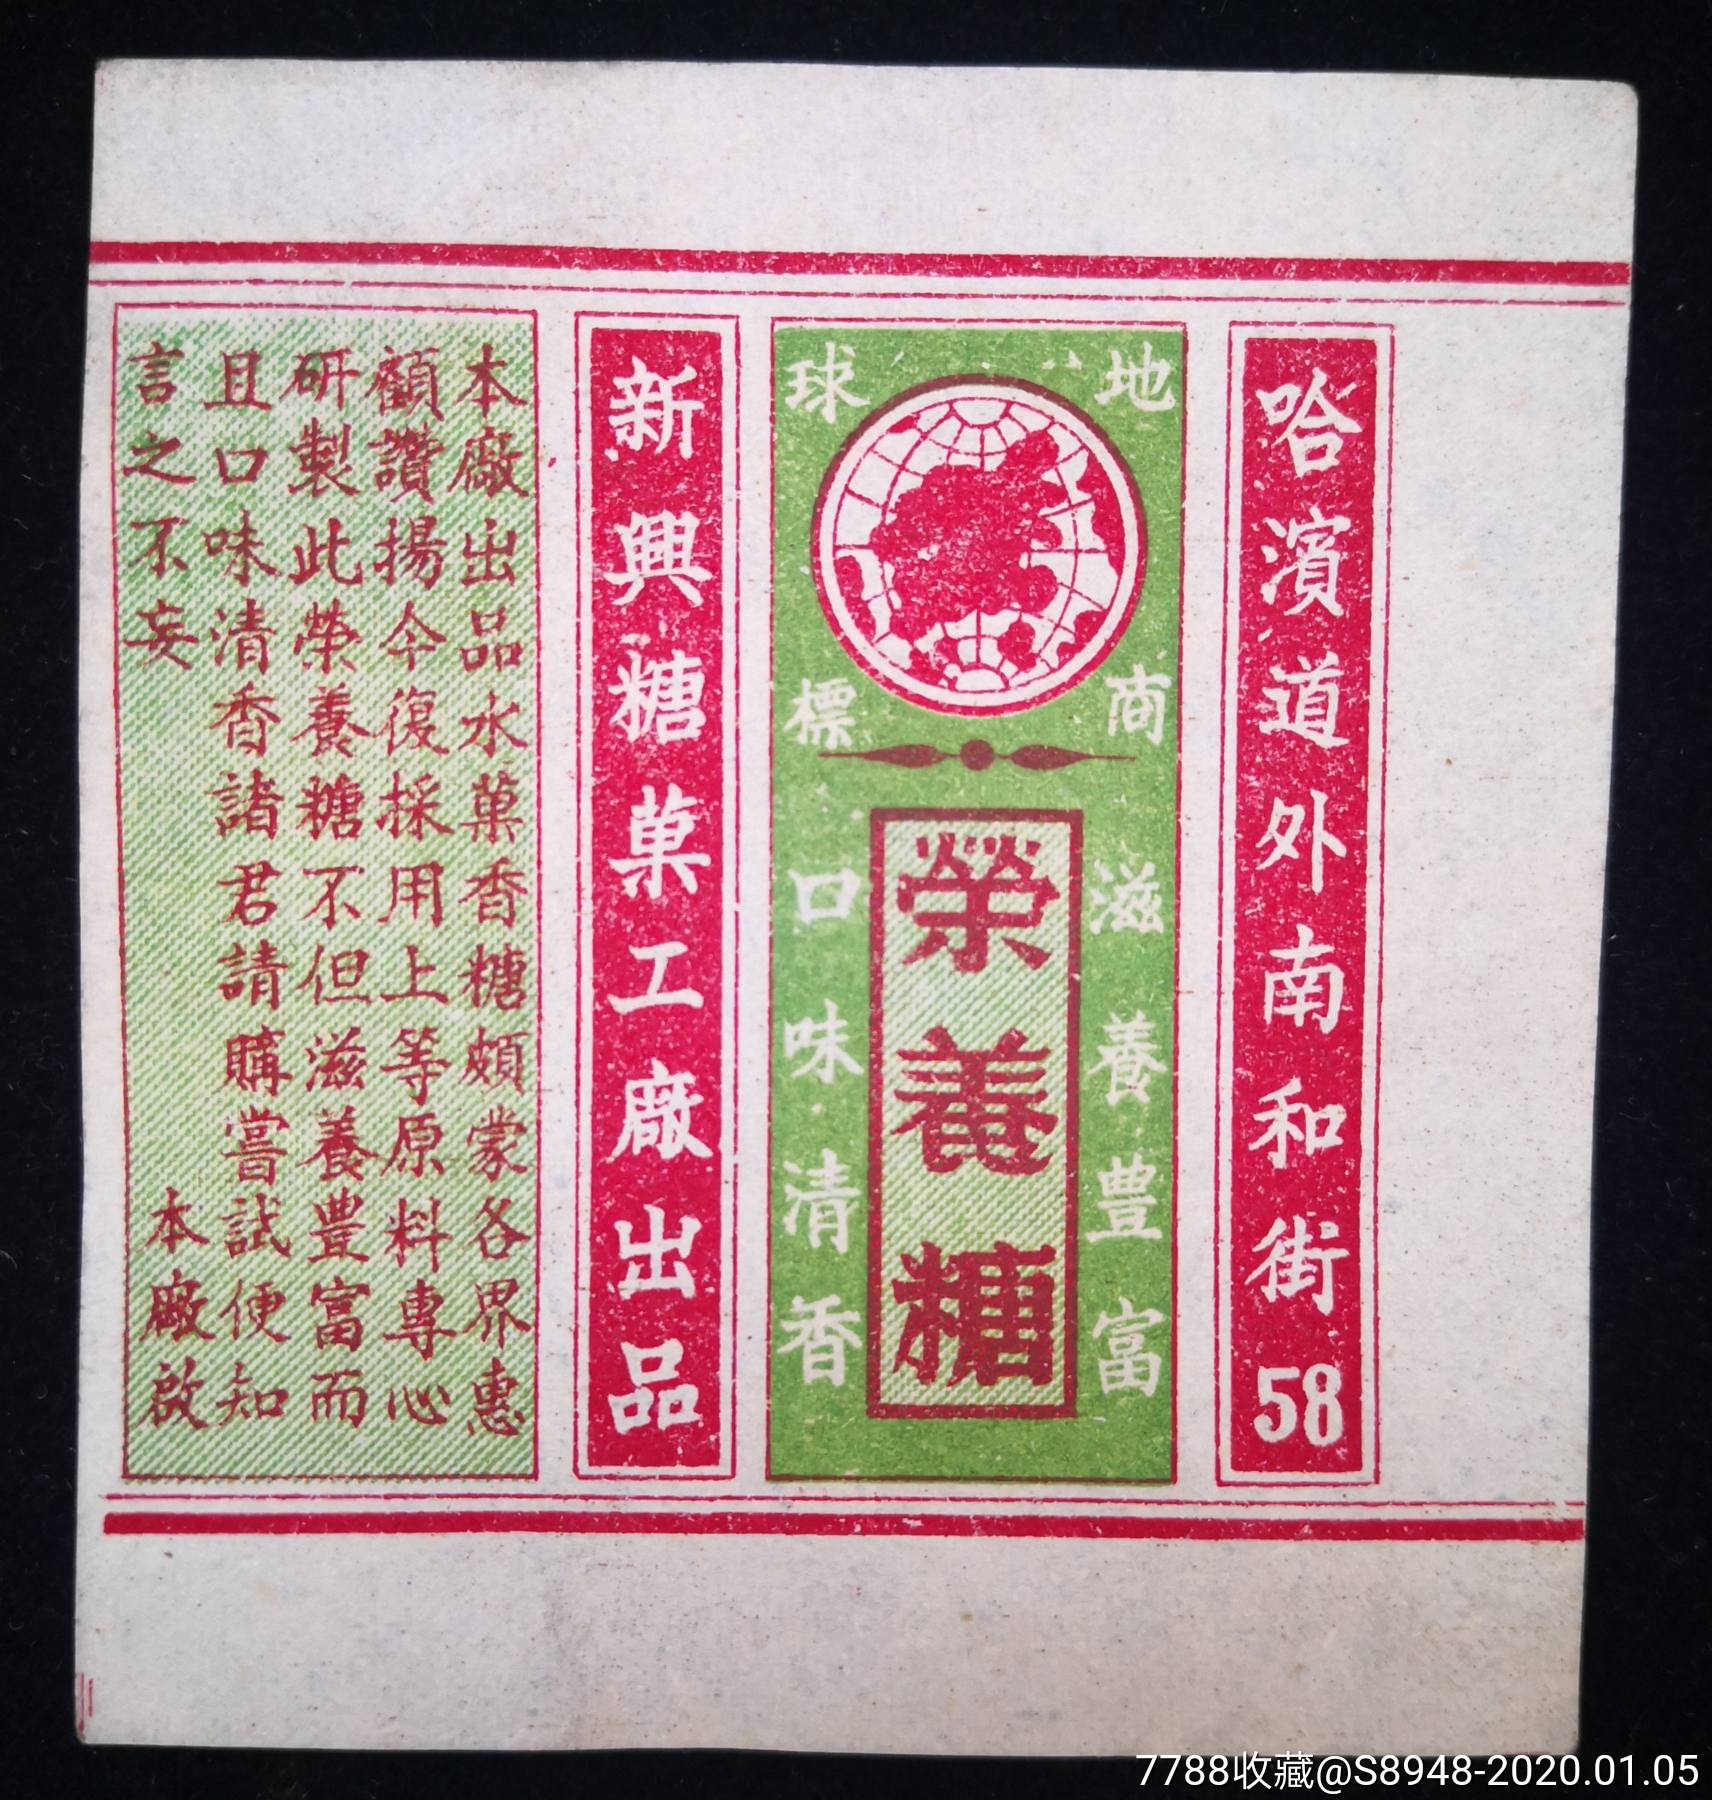 哈濱道外南和街58
地球
商標
滋養豊富
榮養糖
口味清香
新興糖菓工廠出品
本廠出品水菓香糖頗蒙各界惠
顧讚揚今復採用上等原料專心
研製此榮養糖不但滋養豊富而
且口味清香諸君請購嘗試便知
言之不妄
本廠啟
7788收藏@S8948-2020.01.05